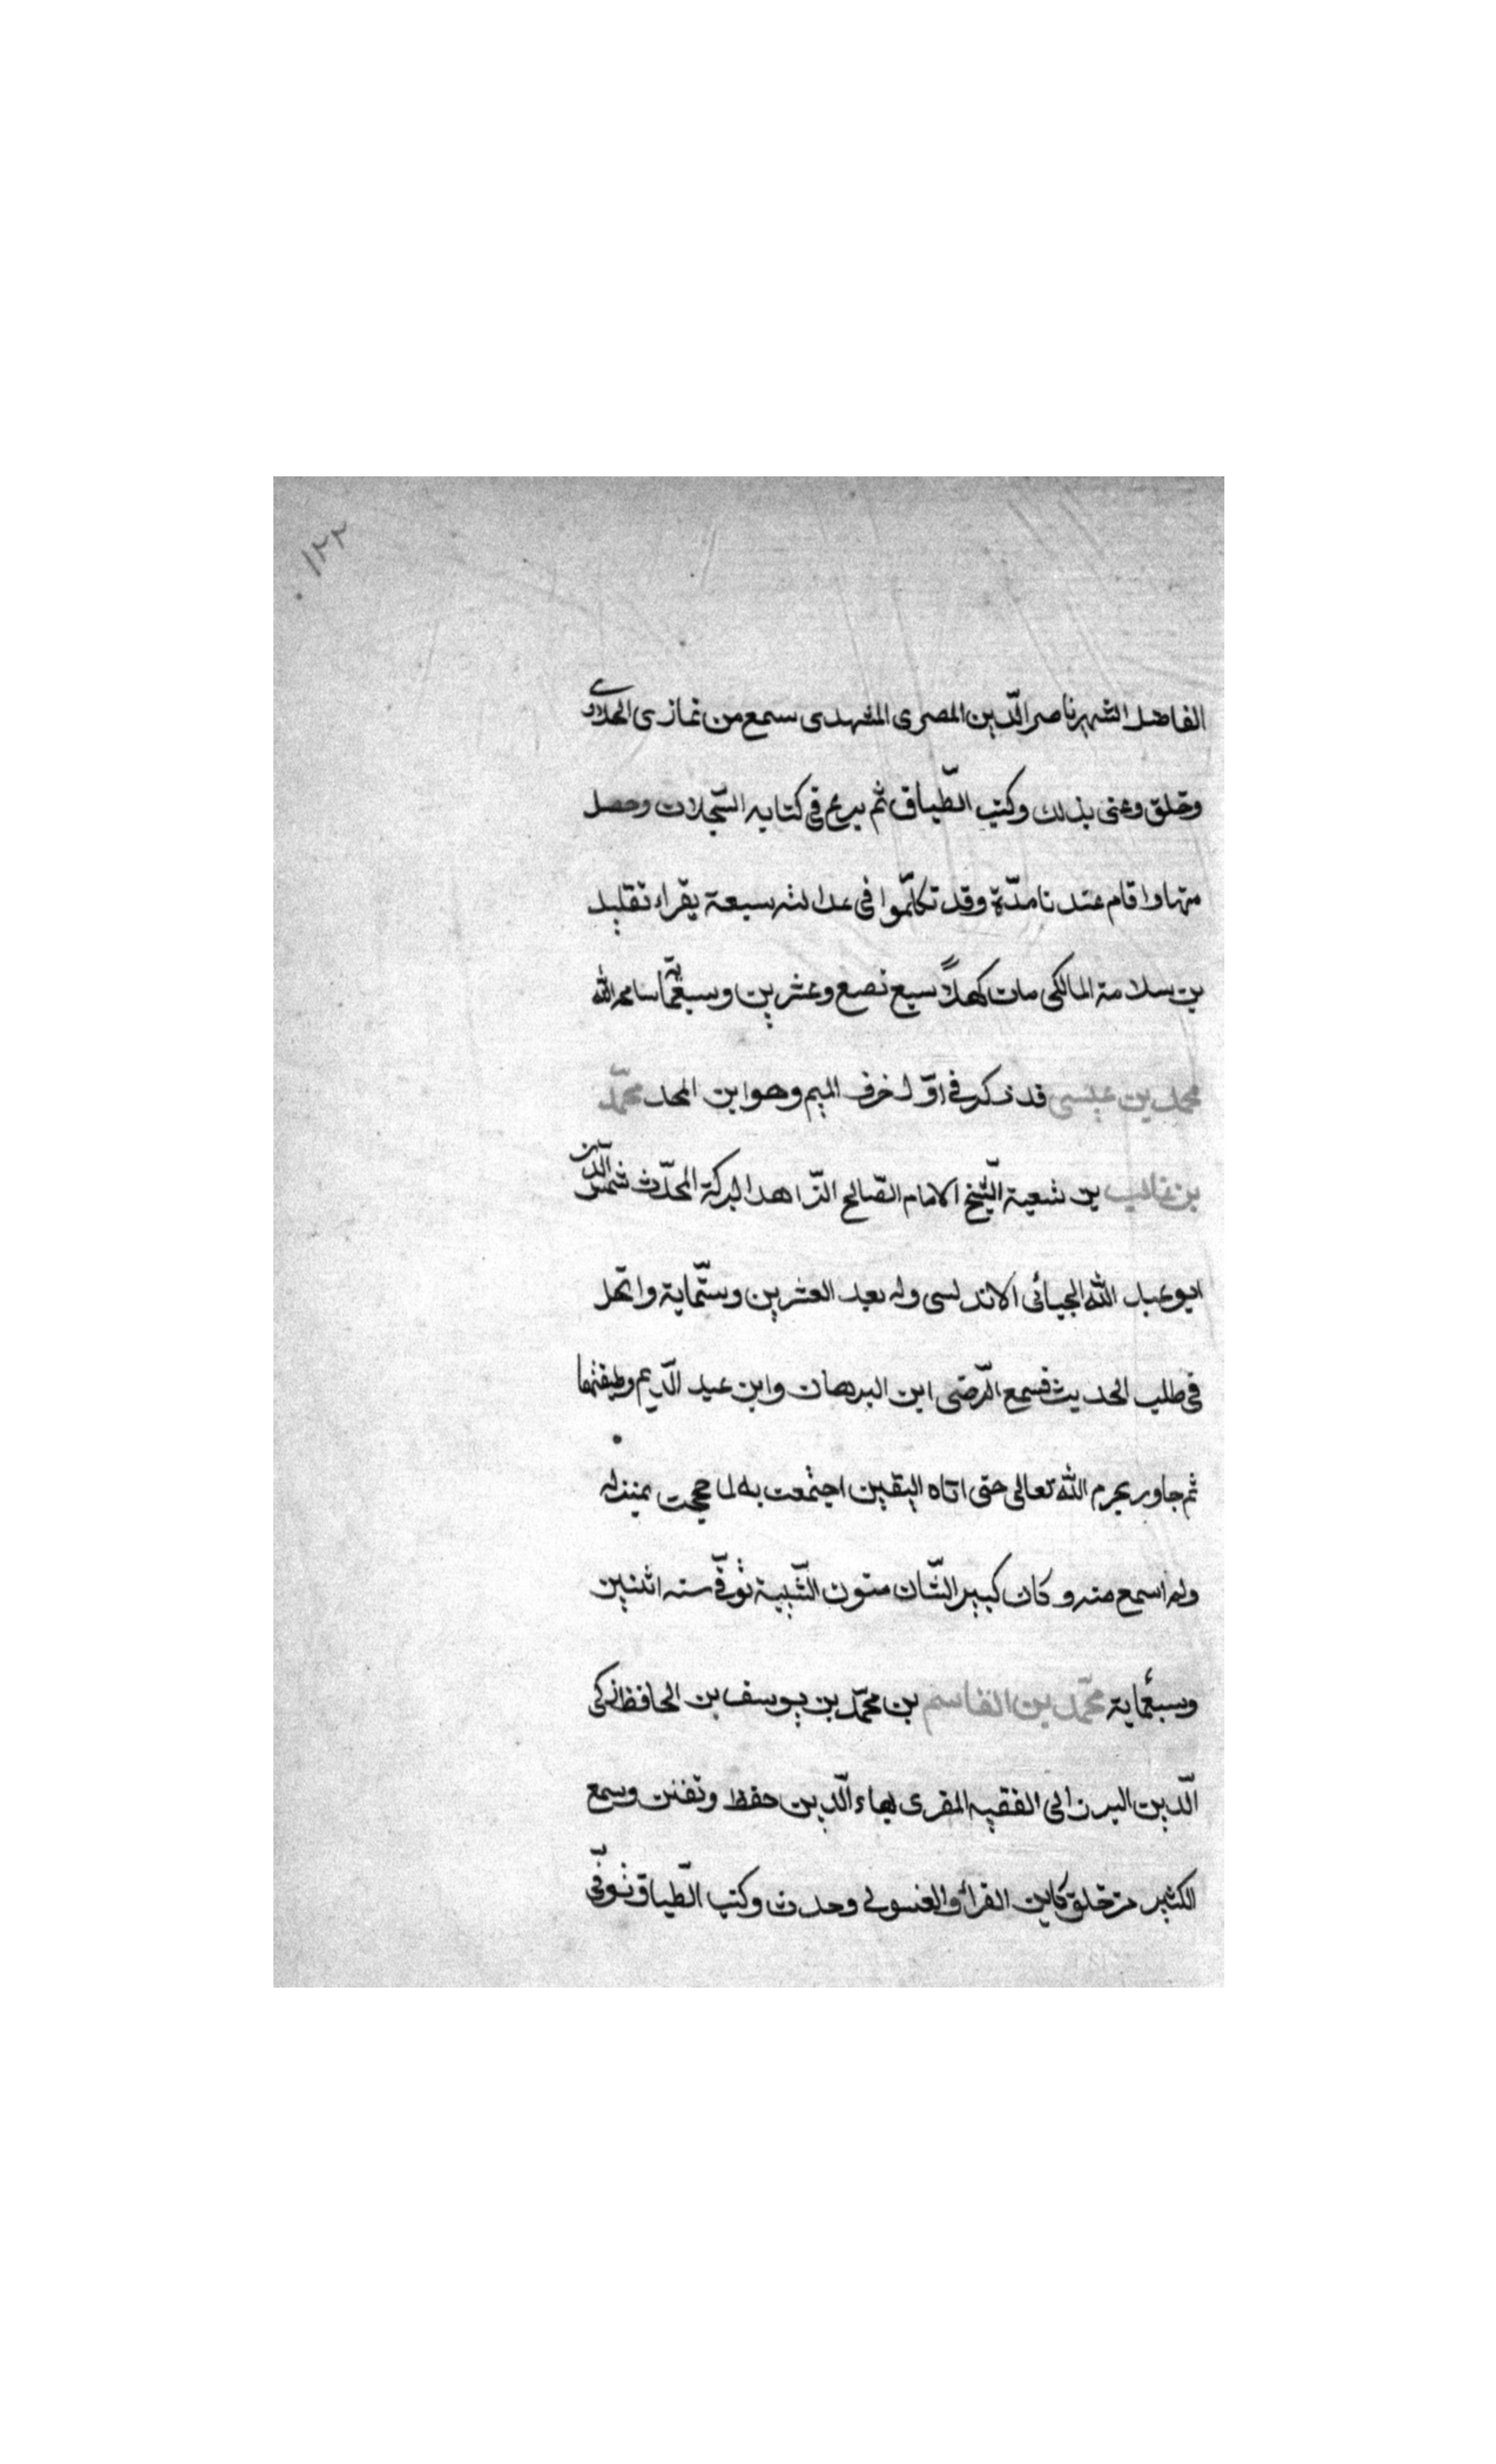 ١٢٢
الفاضل الشهير ناصر الدّين المصرى المشهدى سمع من غازى الحلاوى
وخلق وعنى بذلك وكتب الطّباق ثم برع فى كتابه السّجلات وحصل
منها واقام عندنا مدّة وقد تكلّموا فى عدالته سبعة يقراء تقليد
بن سلامة المالكى مات كهلاً سبع نصع وعشرين وسبعمّاية سامحه الله
محمد بن عيسى قد ذكر فى اوّل حرف الميم وهو ابن المجد محمّد
بن غالب بن شعبة الشّيخ الامام الصّالح الزّاهد البركة المحدّث شمس الدّين
ابو عبد الله الجيانى الاندلسى ولد بعد العشرين وستّماية وارتحل
فى طلب الحديث فسمع الرّضى ابن البرهان وابن عبد الدّيم وطبقتهما
ثم جاور بحرم الله تعالى حتى اتاه اليقين اجتمعت به لما حججت بمنزله
ولم اسمع منه وكان كبير الشّان منون الشّيبة توفّى سنه اثنين
وسبعماية محمّد بن القاسم بن محمّد بن يوسف بن الحافظ زكى
الدّين البرزالى الفقيه المقرى بهاء الدّين حفظ وتفنن وسمع
الكثير من خلق كابن الفراء والغسولى وحدث وكتب الطّباق توفّى